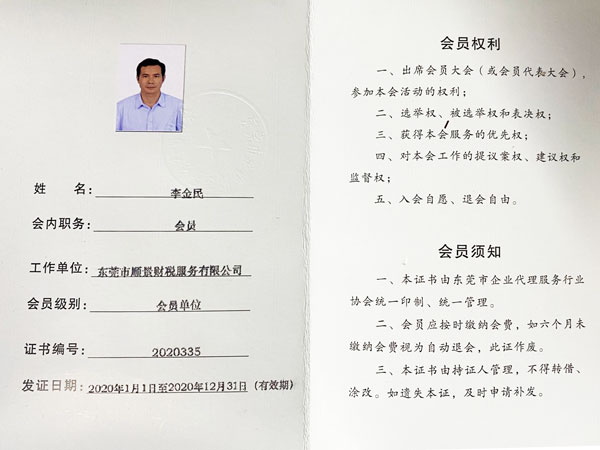 姓　　名：李金民
会内职务：会员
工作单位：东莞市顺景财税服务有限公司
会员级别：会员单位
证书编号：2020335
发证日期：2020年1月1日至2020年12月31日（有效期）
会员权利
一、出席会员大会（或会员代表大会），
参加本会活动的权利；
二、选举权、被选举权和表决权；
三、获得本会服务的优先权；
四、对本会工作的提议案权、建议权和
监督权；
五、入会自愿、退会自由。
会员须知
一、本证书由东莞市企业代理服务行业
协会统一印制、统一管理。
二、会员应按时缴纳会费，如六个月未
缴纳会费视为自动退会，此证作废。
三、本证书由持证人管理，不得转借、
涂改。如遗失本证，及时申请补发。